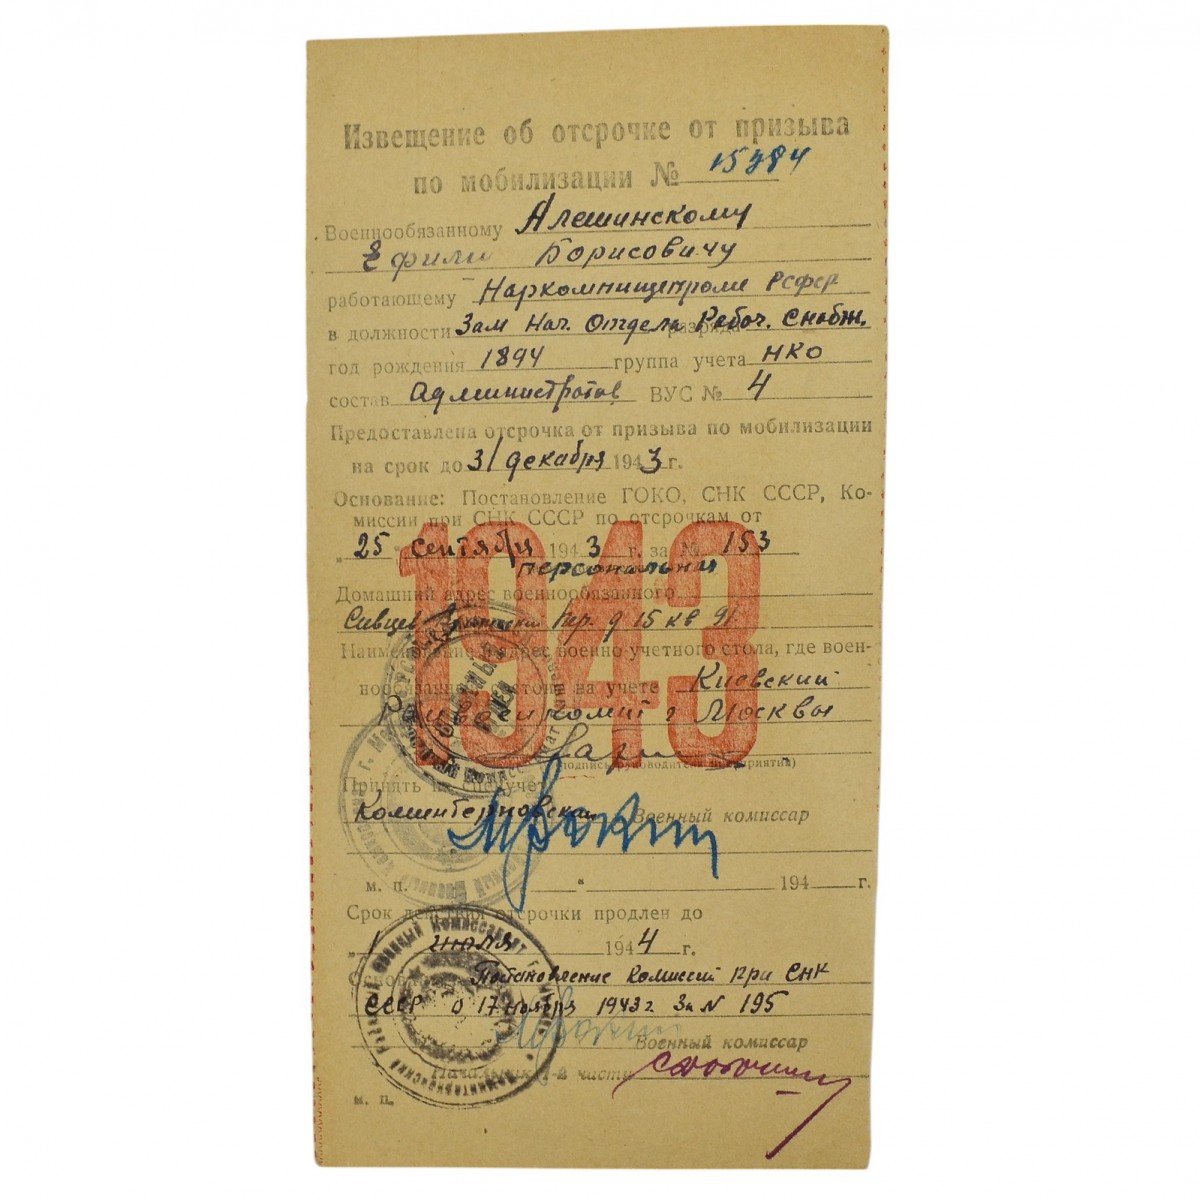 Извещение об отсрочке от призыва
по мобилизации №
Военнообязанному Алешинскому
Ефиму Борисовичу
работающему Наркомпищепроме РСФСР
в должности Зам Нач. Отдела разряда Рабоч. Снабж.
год рождения 1894 группа учета НКО
состав Администратов ВУС № 4
Предоставлена отсрочка от призыва по мобилизации
на срок до 31 декабря 1943 г.
Основание: Постановление ГОКО, СНК СССР, Ко-
миссии при СНК СССР по отсрочкам от
„25 сентября 1943 г. за № 153
персональная
1943
Домашний адрес военнообязанного
Сивцев пер. д 15 кв 91
Наименование и адрес военно-учетного стола, где воен-
нообязанный состоит на учете Киевский
Райвоенкомат г Москвы
(подпись руководителя предприятия)
Принять на спецучет
Коминтерновская Военный комиссар
м. п. “ 194 г.
Срок действия отсрочки продлен до
„1 июля 1944 г.
Постановление комиссии при СНК
СССР о 17 ноября 1943 г За N 195
Военный комиссар
Начальник й части
м. п.